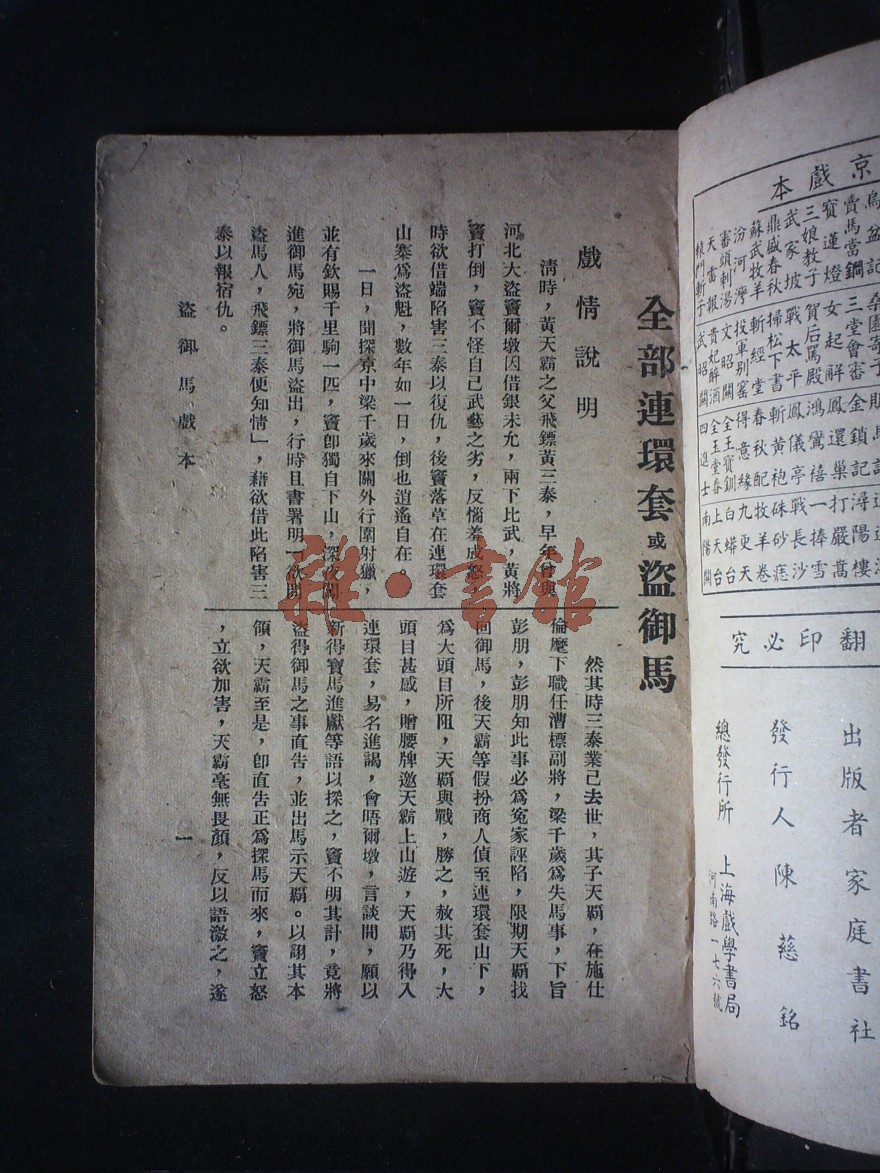 全部連環套或盜御馬
戲情說明
清時，黃天霸之父飛鏢黃三泰，早年曾與
河北大盜竇爾墩因借銀未允，兩下比武，黃將
竇打倒，竇不怪自己武藝之劣，反惱羞成怒，
時欲借端陷害三泰以復仇，後竇落草在連環套
山寨爲盜魁，數年如一日，倒也逍遙自在。
一日，聞探京中梁千歲來關外行圍射獵，
並有欽賜千里駒一匹，竇卽獨自下山，深夜
進御馬宛，將御馬盜出，行時且書署明「欲問
盜馬人，飛鏢三泰便知情」，藉欲借此陷害三
泰以報宿仇。
然其時三泰業已去世，其子天霸，在施仕
倫麾下職任漕標副將，梁千歲爲失馬事，下旨
彭朋，彭朋知此事必爲冤家誣陷，限期天霸找
回御馬，後天霸等假扮商人偵至連環套山下，
爲大頭目所阻，天霸與戰，勝之，赦其死，大
頭目甚感，贈腰牌邀天霸上山遊，天霸乃得入
連環套，易名進謁，會唔爾墩，言談間，願以
新得寶馬進獻等語以探之，竇不明其計，竟將
盜得御馬之事直告，並出馬示天霸。以詡其本
領，天霸至是，卽直告正爲探馬而來，竇立怒
，立欲加害，天霸毫無畏顏，反以語激之，遂
盜御馬戲本
一
雜·書館
京戲本
烏盆記
賣馬當鐧
寶蓮燈
三娘教子
武家坡
鼎盛春秋
蘇武牧羊
汾河灣
審頭刺湯
天雷報
轅門斬子
桑園寄子
三堂會審
女起解
賀后罵殿
戰太平
掃松下書
斬經堂
投軍別窰
文昭關
貴妃醉酒
武昭關
金鎖記
鳳還巢
鴻鸞禧
鳳儀亭
斬黃袍
春秋配
得意緣
全王寶釧
全玉堂春
四進士
潯陽樓
打嚴嵩
一捧雪
戰長沙
硃砂痣
牧羊卷
九更天
白蟒台
上天台
南陽關
翻印必究
出版者家庭書社
發行人陳慈銘
總發行所 上海戲學書局
河南路一七六號